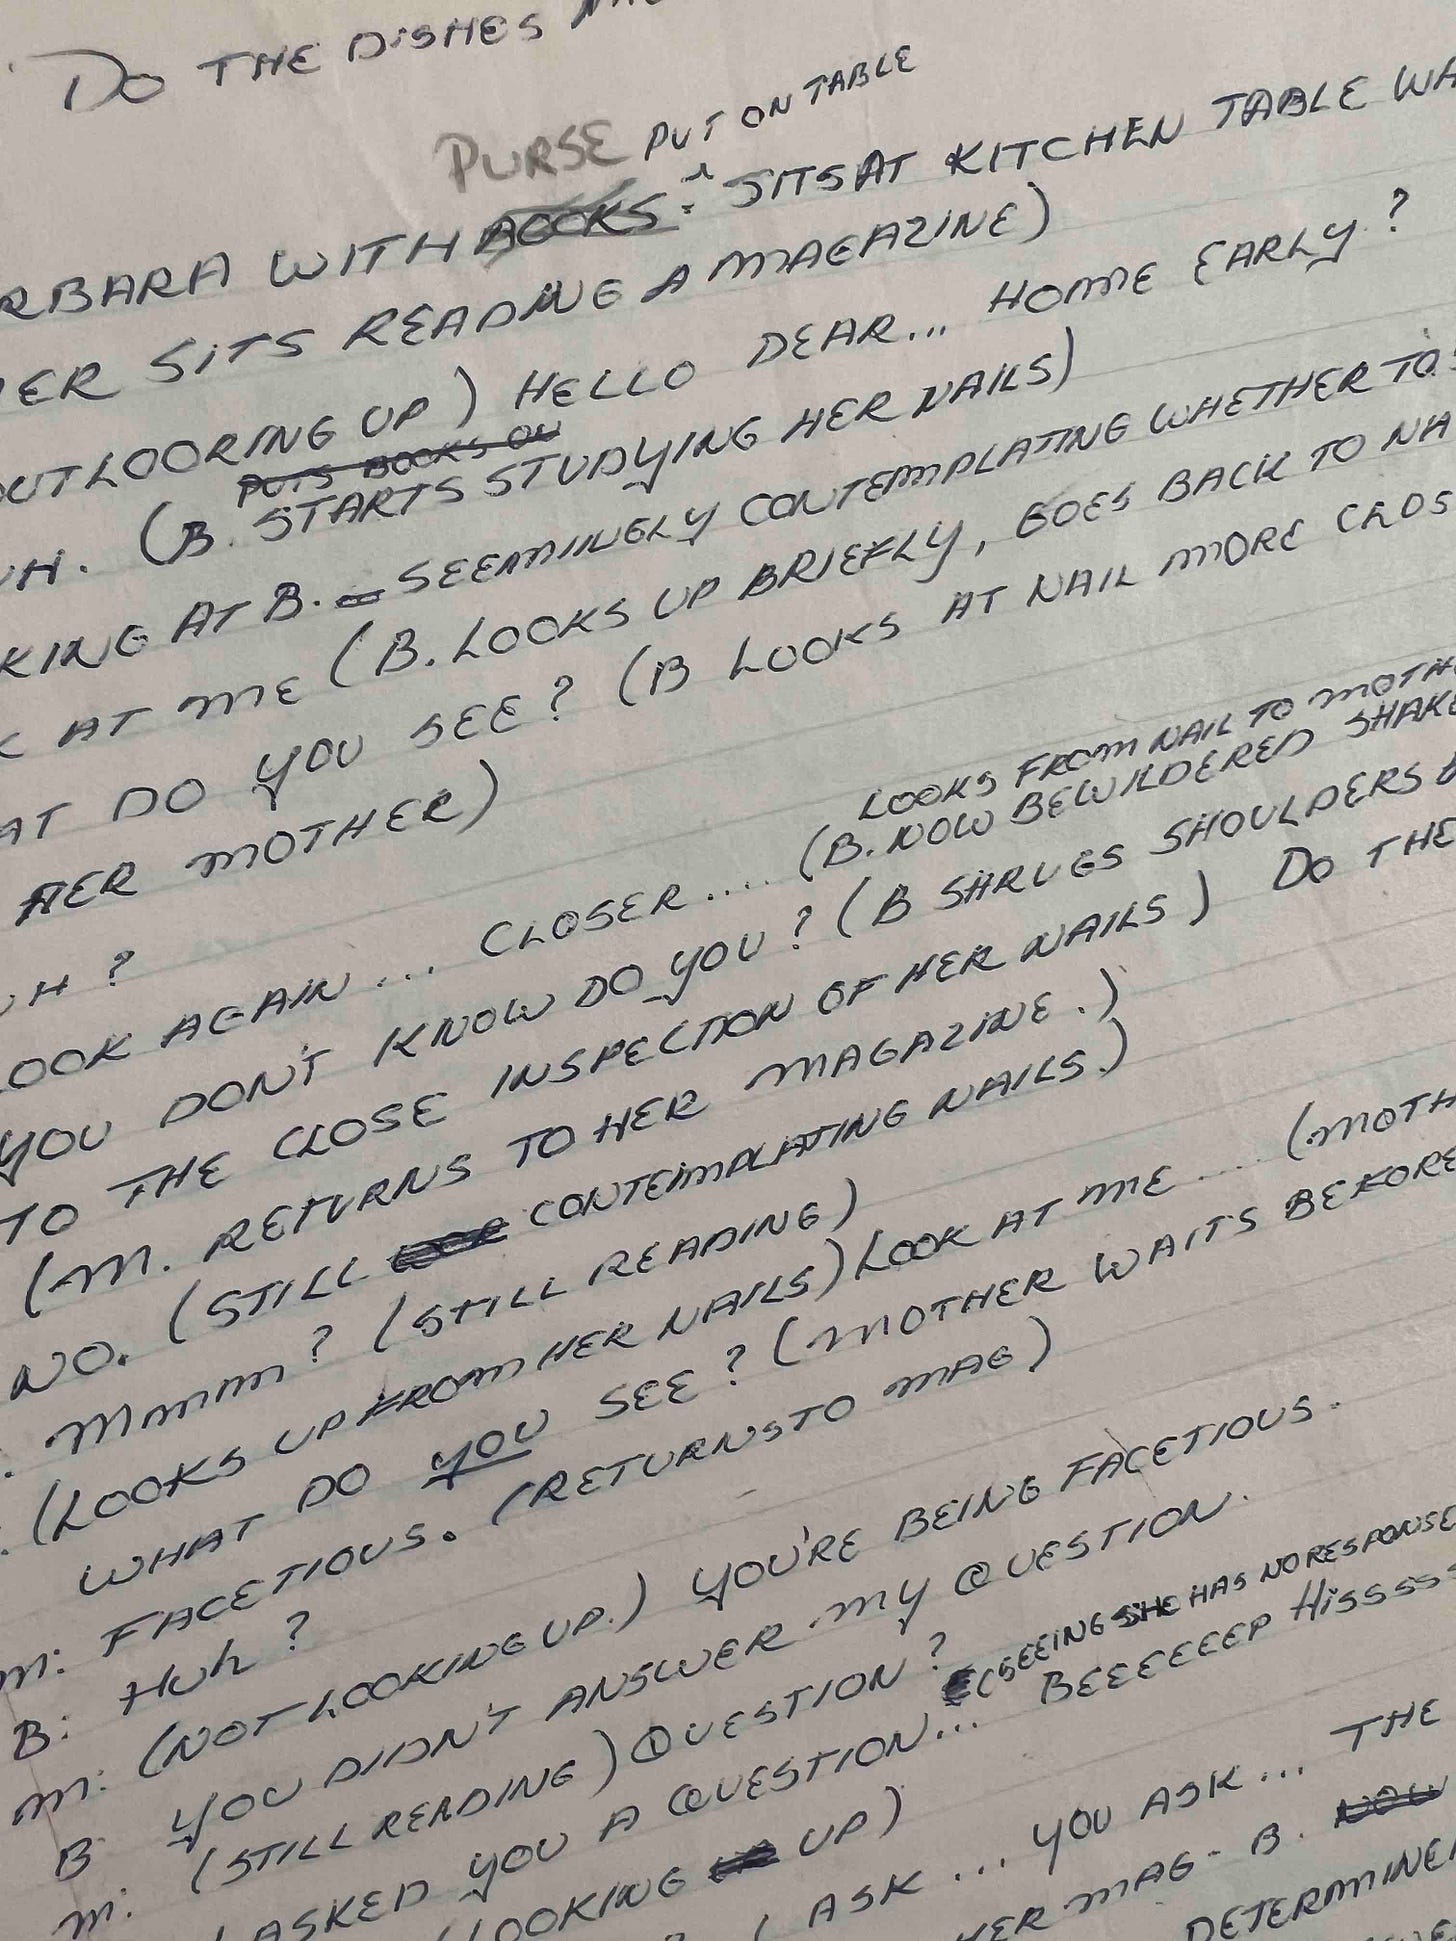 DO THE DISHES
PURSE PUT ON TABLE
RBARA WITH BOOKS. SITS AT KITCHEN TABLE WA
ER SITS READING A MAGAZINE)
OUT LOORING UP) HELLO DEAR... HOME EARLY?
PUTS BOOKS ON
UH. (B. STARTS STUDYING HER NAILS)
KING AT B. SEEMINGLY CONTEMPLATING WHETHER TO
K AT ME (B. LOOKS UP BRIEFLY, GOES BACK TO NA
AT DO YOU SEE? (B LOOKS AT NAIL MORE CLOS
HER MOTHER)
LOOKS FROM NAIL TO MOTH
UH?
OOK AGAIN... CLOSER.... (B. NOW BEWILDERED SHAKE
YOU DON'T KNOW DO YOU? (B SHRUGS SHOULDERS &
TO THE CLOSE INSPECTION OF HER NAILS) DO THE
(M. RETURNS TO HER MAGAZINE.)
NO. (STILL CONTEMPLATING NAILS.)
. Mmmm? (STILL READING)
. (LOOKS UP FROM HER NAILS) LOOK AT ME .... (MOTH
WHAT DO YOU SEE? (MOTHER WAITS BEFORE
M: FACETIOUS. (RETURNS TO MAG)
B: Huh?
M: (NOT LOOKING UP.) YOU'RE BEING FACETIOUS.
B YOU DIDN'T ANSWER MY QUESTION.
M: (STILL READING) QUESTION?
(SEEING SHE HAS NO RESPONSE
I ASKED YOU A QUESTION... BEEEEEEP HISSSSS
(LOOKING UP)
I ASK... YOU ASK... THE
HER MAG - B. NOW
DETERMINE